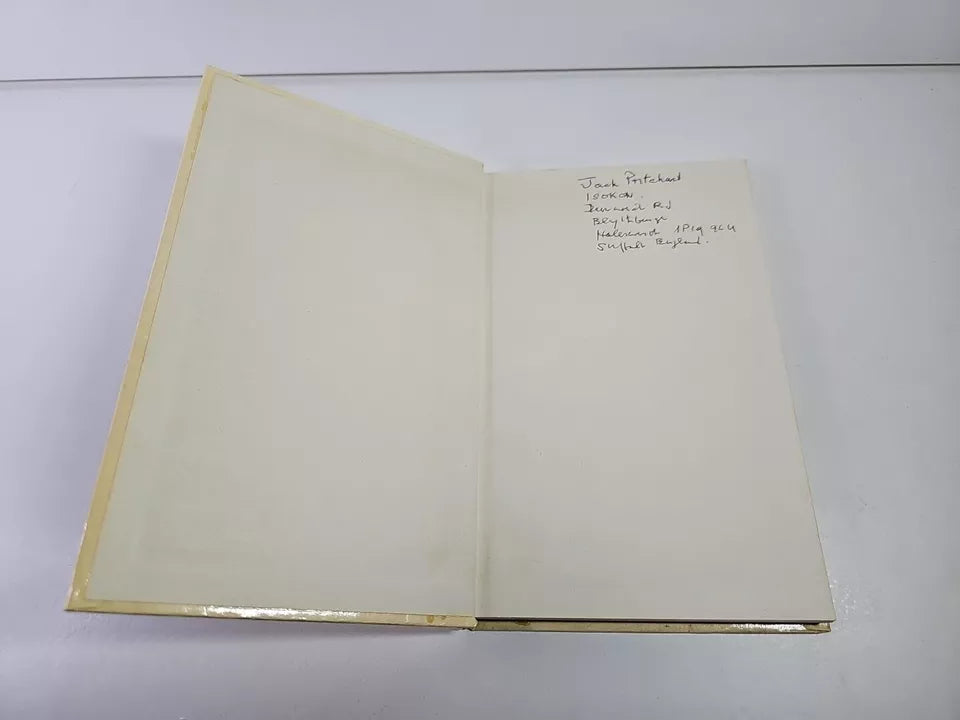 Jack Pritchard
ISOKON.
Rd
Blythburgh
Halesworth IP19 9LU
Suffolk England.